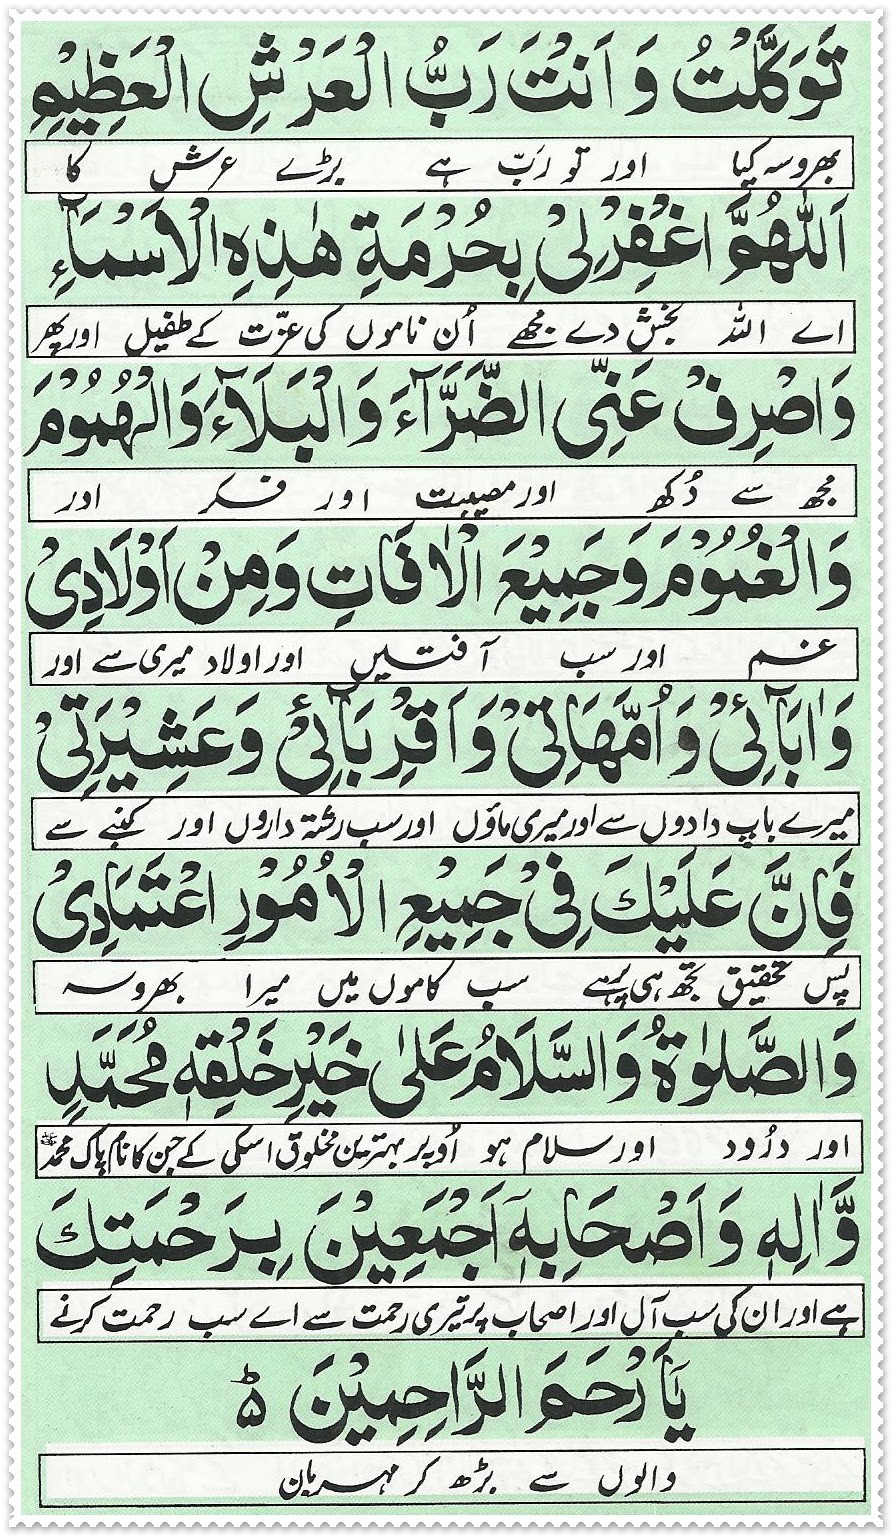 تَوَكَّلْتُ وَ اَنْتَ رَبُّ الْعَرْشِ الْعَظِيْمِ
بھروسہ کیا اور تو رَبّ ہے بڑے عرش کا
اَللّٰهُمَّ اغْفِرْلِیْ بِحُرْمَةِ هٰذِهِ الْاَسْمَآءِ
اے اللہ بخش دے مجھے اُن ناموں کی عزّت کے طفیل اور پھر
وَاصْرِفْ عَنِّی الضَّرَّآءَ وَالْبَلَآءَ وَالْهُمُوْمَ
مجھ سے دُکھ اور مصیبت اور فکر اور
وَالْغُمُوْمَ وَجَمِيْعَ الْاٰفَاتِ وَمِنْ اَوْلَادِیْ
غم اور سب آفتیں اور اولاد میری سے اور
وَاٰبَآئِیْ وَاُمَّهَاتِیْ وَاَقْرِبَآئِیْ وَعَشِيْرَتِیْ
میرے باپ دادوں سے اور میری ماؤں اور سب رشتہ داروں اور کنبے سے
فَاِنَّ عَلَيْكَ فِیْ جَمِيْعِ الْاُمُوْرِ اعْتِمَادِیْ
پس تحقیق تجھ ہی پر ہے سب کاموں میں میرا بھروسہ
وَالصَّلٰوةُ وَالسَّلَامُ عَلٰی خَيْرِ خَلْقِهٖ مُحَمَّدٍ
اور درُود اور سلام ہو اُوپر بہترین مخلوق اسکی کے جن کا نام پاک محمد ﷺ
وَّاٰلِهٖ وَاَصْحَابِهٖٓ اَجْمَعِيْنَ بِرَحْمَتِكَ
ہے اور ان کی سب آل اور اصحاب پر تیری رحمت سے اے سب رحمت کرنے
يَا اَرْحَمَ الرَّاحِمِيْنَ ڈ
والوں سے بڑھ کر مہربان